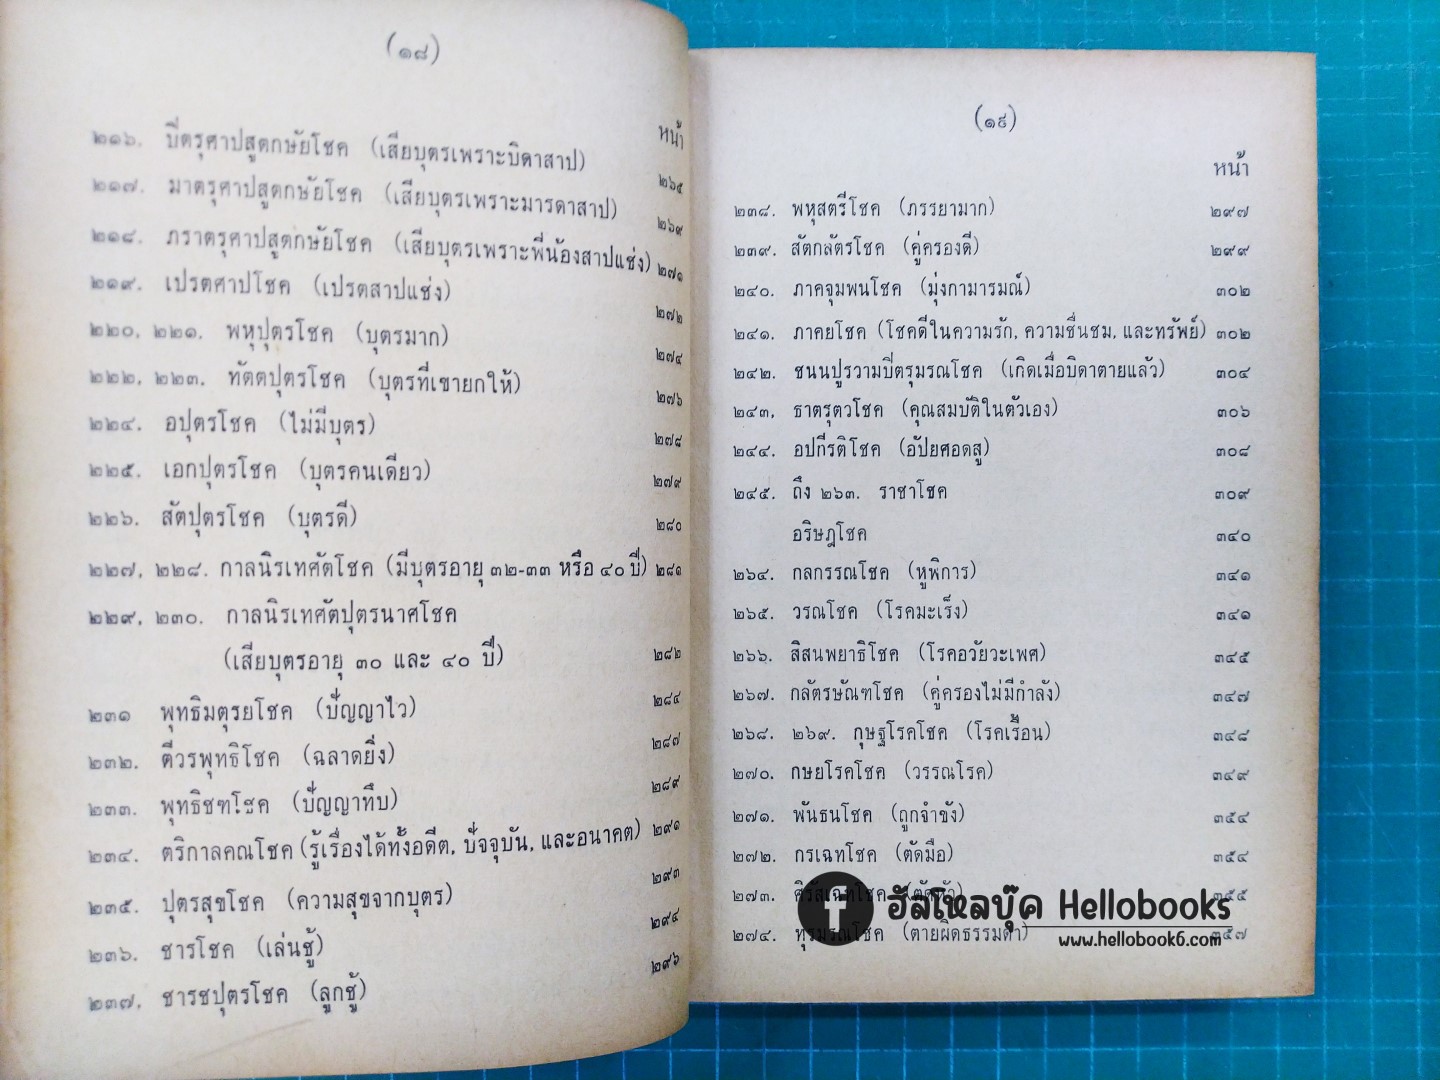 (๑๘)
หน้า
๒๑๖. บี่ตรุศาปสูตกษัยโชค (เสียบุตรเพราะบิดาสาป) ๒๖๕
๒๑๗. มาตรุศาปสูตกษัยโชค (เสียบุตรเพราะมารดาสาป) ๒๖๙
๒๑๘. ภราตรุศาปสูตกษัยโชค (เสียบุตรเพราะพี่น้องสาปแช่ง) ๒๗๑
๒๑๙. เปรตศาปโชค (เปรตสาปแช่ง) ๒๗๒
๒๒๐, ๒๒๑. พหุปุตรโชค (บุตรมาก) ๒๗๔
๒๒๒, ๒๒๓. ทัตตปุตรโชค (บุตรที่เขายกให้) ๒๗๖
๒๒๔. อปุตรโชค (ไม่มีบุตร) ๒๗๘
๒๒๕. เอกปุตรโชค (บุตรคนเดียว) ๒๗๙
๒๒๖. สัตปุตรโชค (บุตรดี) ๒๘๐
๒๒๗, ๒๒๘. กาลนิรเทศัตโชค (มีบุตรอายุ ๓๒-๓๓ หรือ ๔๐ ปี) ๒๘๑
๒๒๙, ๒๓๐. กาลนิรเทศัตปุตรนาศโชค
(เสียบุตรอายุ ๓๐ และ ๔๐ ปี) ๒๘๒
๒๓๑ พุทธิมตุรยโชค (ปัญญาไว) ๒๘๔
๒๓๒. ตีวรพุทธิโชค (ฉลาดยิ่ง) ๒๘๗
๒๓๓. พุทธิชฑโชค (ปัญญาทึบ) ๒๘๙
๒๓๔. ตริกาลคณโชค (รู้เรื่องได้ทั้งอดีต, ปัจจุบัน, และอนาคต) ๒๙๑
๒๓๕. ปุตรสุขโชค (ความสุขจากบุตร) ๒๙๓
๒๓๖. ชารโชค (เล่นชู้) ๒๙๔
๒๓๗, ชารชปุตรโชค (ลูกชู้) ๒๙๖
(๑๙)
หน้า
๒๓๘. พหุสตรีโชค (ภรรยามาก) ๒๙๗
๒๓๙. สัตกลัตรโชค (คู่ครองดี) ๒๙๙
๒๔๐. ภาคจุมพนโชค (มุ่งกามารมณ์) ๓๐๒
๒๔๑. ภาคยโชค (โชคดีในความรัก, ความชื่นชม, และทรัพย์) ๓๐๒
๒๔๒. ชนนปูรวามปี่ตรุมรณโชค (เกิดเมื่อบิดาตายแล้ว) ๓๐๔
๒๔๓, ธาตรุตวโชค (คุณสมบัติในตัวเอง) ๓๐๖
๒๔๔. อปกีรติโชค (อัปยศอดสู) ๓๐๘
๒๔๕. ถึง ๒๖๓. ราชาโชค ๓๐๙
อริษฎโชค ๓๔๐
๒๖๔. กลกรรณโชค (หูพิการ) ๓๔๑
๒๖๕. วรณโชค (โรคมะเร็ง) ๓๔๑
๒๖๖. สิสนพยาธิโชค (โรคอวัยวะเพศ) ๓๔๕
๒๖๗. กลัตรษัณฑโชค (คู่ครองไม่มีกำลัง) ๓๔๗
๒๖๘. ๒๖๙. กุษฐโรคโชค (โรคเรื้อน) ๓๔๘
๒๗๐. กษยโรคโชค (วรรณโรค) ๓๔๙
๒๗๑. พันธนโชค (ถูกจำขัง) ๓๕๔
๒๗๒. กรเฉทโชค (ตัดมือ) ๓๕๔
๒๗๓. ๓๕๕
๒๗๔. ทุรมรณโชค (ตายผิดธรรมดา) ๓๕๗
ฮัลโหลบุ๊ค Hellobooks
www.hellobook6.com